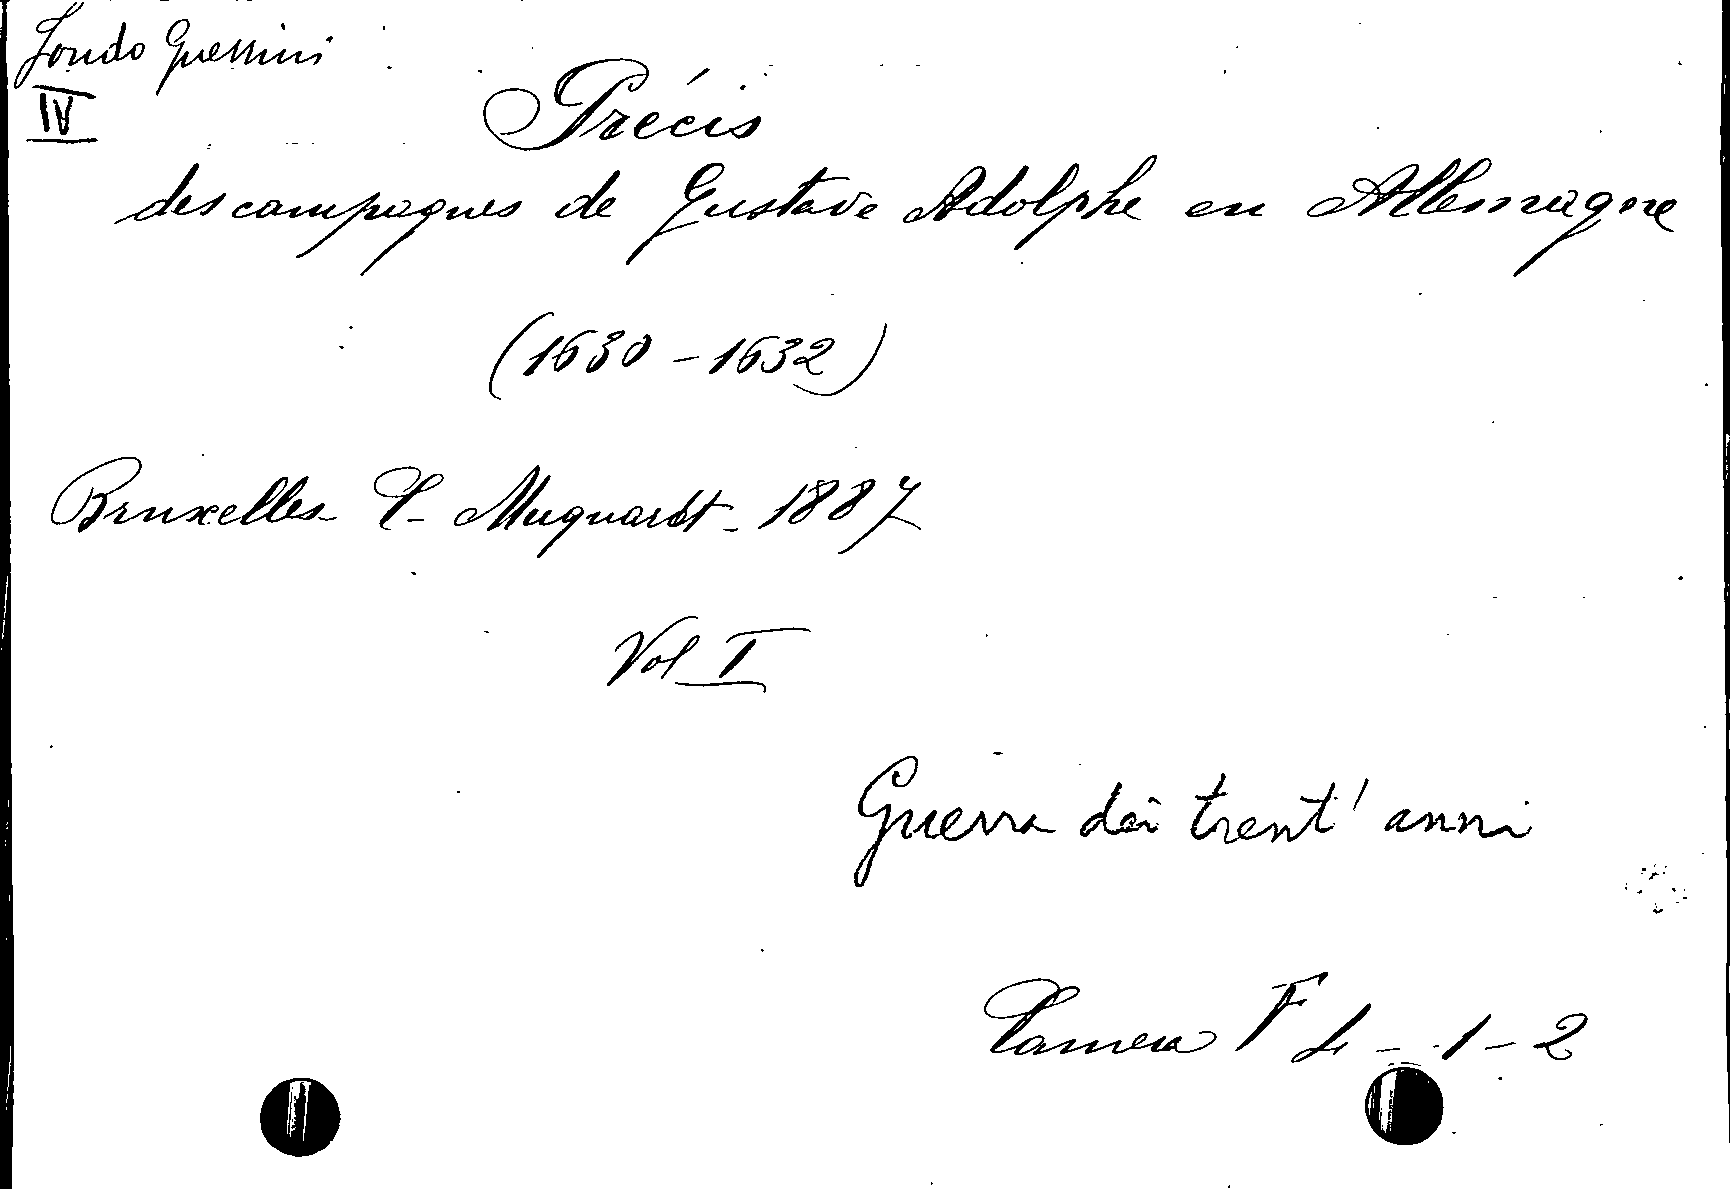 Fondo Guerrini
IV
Précis
des campagnes de Gustave Adolphe en Allemagne
(1630 - 1632)
Bruxelles - C - Muquardt - 1887
Vol I
Guerra dei trent' anni
Camera F L - 1 - 2